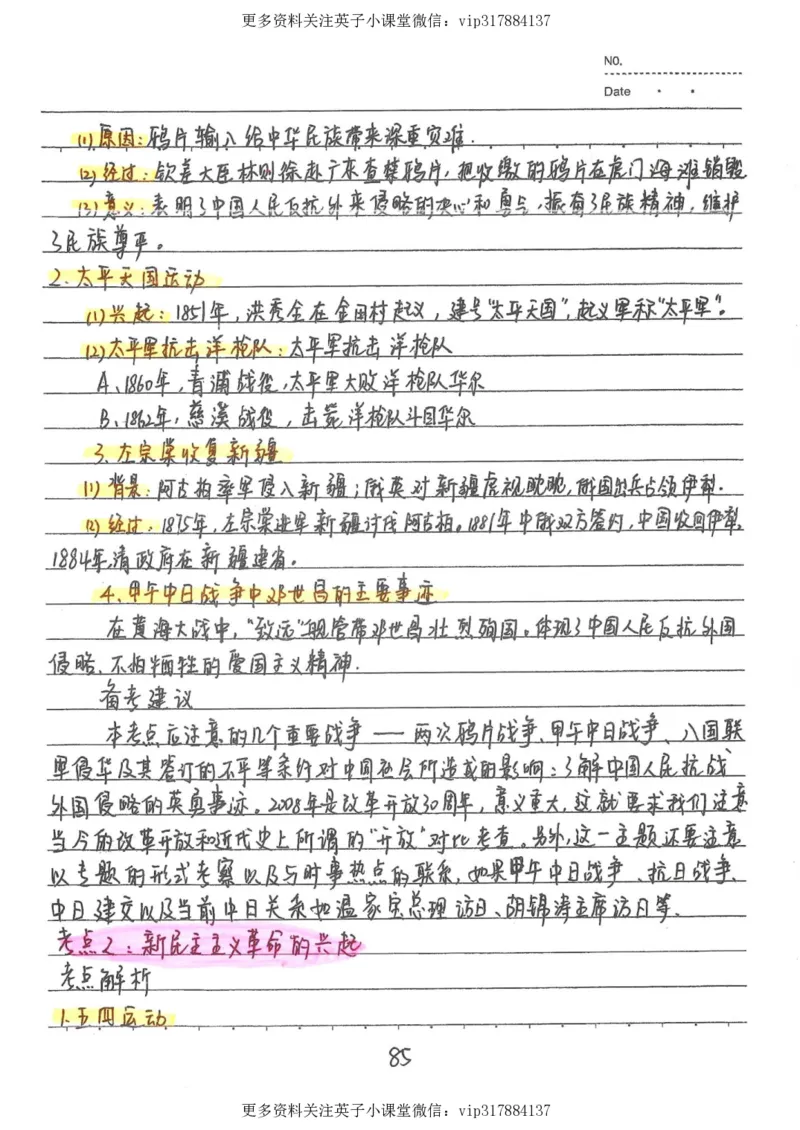 更多资料关注英子小课堂微信：vip317884137
NO.
Date
(1)原因：鸦片输入给中华民族带来深重灾难．
(2)经过：钦差大臣林则徐赴广东查禁鸦片，把收缴的鸦片在虎门海滩销毁
(3)意义：表明了中国人民反抗外来侵略的决心和勇气，振奋了民族精神，维护
了民族尊严。
2.太平天国运动
(1)兴起：1851年，洪秀全在金田村起义，建号“太平天国”，起义军称“太平军”。
(2)太平军抗击洋枪队：太平军抗击洋枪队
A、1860年，青浦战役，太平军大败洋枪队华尔
B、1862年，慈溪战役，击毙洋枪队头目华尔
3.左宗棠收复新疆
(1)背景：阿古柏率军侵入新疆；俄英对新疆虎视眈眈，俄国出兵占领伊犁．
(2)经过：1875年，左宗棠进军新疆讨伐阿古柏。1881年中俄双方签约，中国收回伊犁，
1884年，清政府在新疆建省。
4、甲午中日战争中邓世昌的主要事迹
在黄海大战中，“致远”舰管带邓世昌壮烈殉国。体现了中国人民反抗外国
侵略、不怕牺牲的爱国主义精神．
备考建议
本考点应注意的几个重要战争——两次鸦片战争、甲午中日战争、八国联
军侵华及其签订的不平等条约对中国社会所造成的影响：了解中国人民抗战
外国侵略的英勇事迹。2008年是改革开放30周年，意义重大，这就要求我们注意
当今的改革开放和近代史上所谓的“开放”对比考查。另外，这一主题还要注意
以专题的形式考察以及与时事热点的联系，如果甲午中日战争、抗日战争、
中日建交以及当前中日关系如温家宝总理访日、胡锦涛主席访日等、
考点2：新民主主义革命的兴起
考点解析
1.五四运动
85
更多资料关注英子小课堂微信：vip317884137